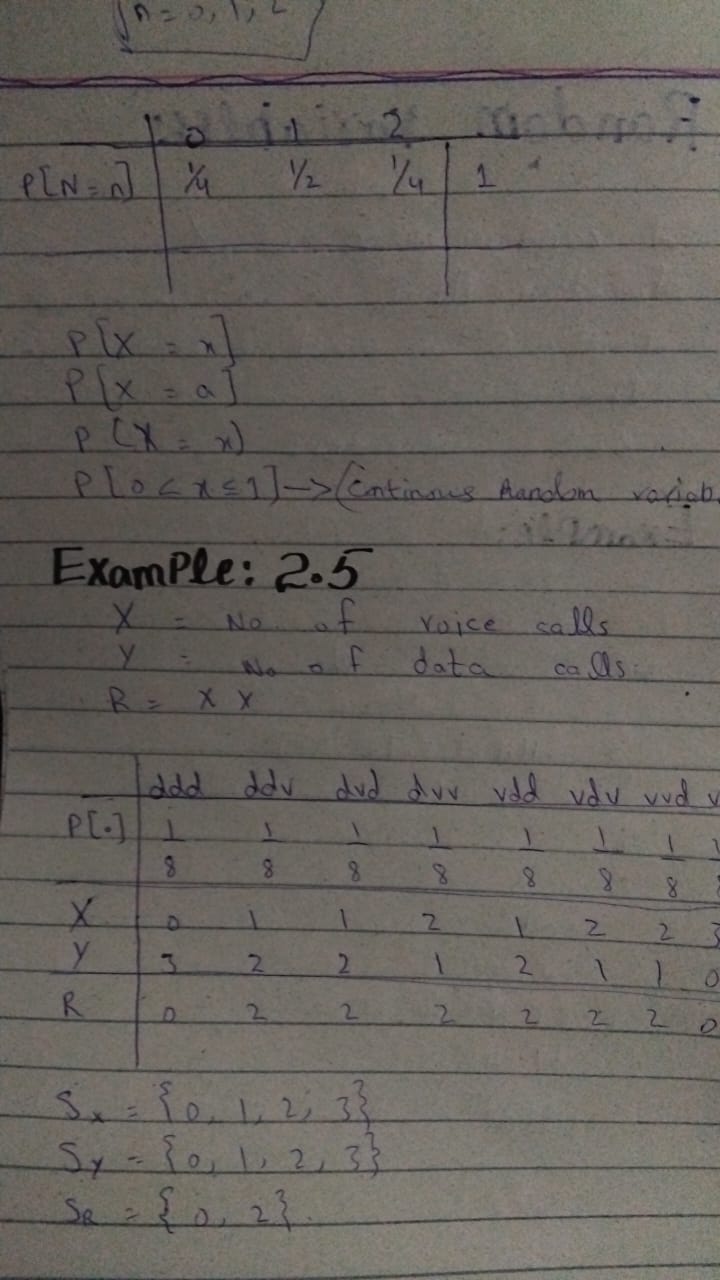 n = 0, 1, 2
0 1 2
P[N = n] 1/4 1/2 1/4 1
P[X = x]
P[X = a]
P(X = x)
P[0 < x ≤ 1] → (Continous Random variab
Example: 2.5
X = No. of voice calls
Y = No of data calls
R = X Y
ddd ddv dvd dvv vdd vdv vvd v
P[.] 1/8 1/8 1/8 1/8 1/8 1/8 1/8
X 0 1 1 2 1 2 2 3
Y 3 2 2 1 2 1 1 0
R 0 2 2 2 2 2 2 0
Sx = {0, 1, 2, 3}
Sy = {0, 1, 2, 3}
SR = {0, 2}.